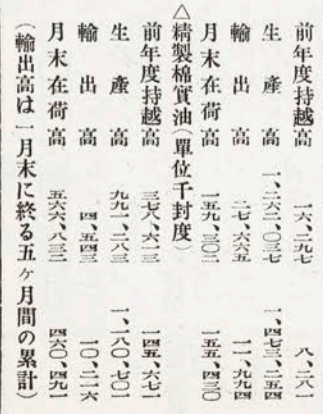 前年度持越高 一六、二九七 八、二八一
生産高 一、二六二、〇三七 一、四七三、二五四
輸出高 二七、六六五 一一、九九四
月末在荷高 一五九、三〇二 一五五、四三〇
△精製棉實油(單位千封度)
前年度持越高 三七八、六一三 一四五、六七一
生産高 九九一、二八三 一、二八〇、七〇一
輸出高 四、五四三 一〇、二一六
月末在荷高 五六六、八三二 四六〇、四九一
(輸出高は一月末に終る五ヶ月間の累計)